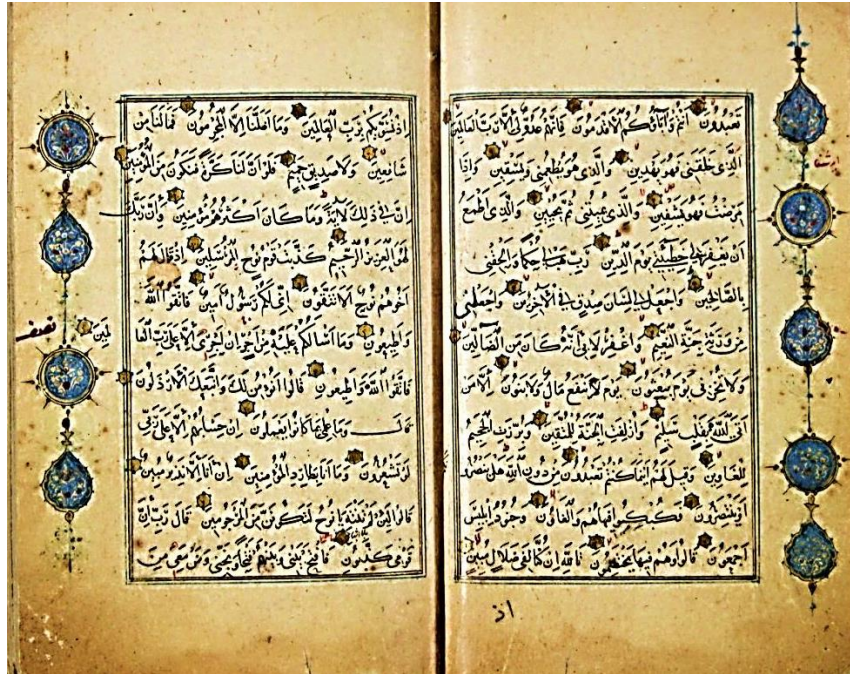 تَعْبُدُونَ أَنْتُمْ وَآبَاؤُكُمُ الْأَقْدَمُونَ فَإِنَّهُمْ عَدُوٌّ لِي إِلَّا رَبَّ الْعَالَمِينَ
الَّذِي خَلَقَنِي فَهُوَ يَهْدِينِ وَالَّذِي هُوَ يُطْعِمُنِي وَيَسْقِينِ وَإِذَا
مَرِضْتُ فَهُوَ يَشْفِينِ وَالَّذِي يُمِيتُنِي ثُمَّ يُحْيِينِ وَالَّذِي أَطْمَعُ
أَنْ يَغْفِرَ لِي خَطِيئَتِي يَوْمَ الدِّينِ رَبِّ هَبْ لِي حُكْمًا وَأَلْحِقْنِي
بِالصَّالِحِينَ وَاجْعَلْ لِي لِسَانَ صِدْقٍ فِي الْآخِرِينَ وَاجْعَلْنِي
مِنْ وَرَثَةِ جَنَّةِ النَّعِيمِ وَاغْفِرْ لِأَبِي إِنَّهُ كَانَ مِنَ الضَّالِّينَ
وَلَا تُخْزِنِي يَوْمَ يُبْعَثُونَ يَوْمَ لَا يَنْفَعُ مَالٌ وَلَا بَنُونَ إِلَّا مَنْ
أَتَى اللَّهَ بِقَلْبٍ سَلِيمٍ وَأُزْلِفَتِ الْجَنَّةُ لِلْمُتَّقِينَ وَبُرِّزَتِ الْجَحِيمُ
لِلْغَاوِينَ وَقِيلَ لَهُمْ أَيْنَمَا كُنْتُمْ تَعْبُدُونَ مِنْ دُونِ اللَّهِ هَلْ يَنْصُرُونَكُمْ
أَوْ يَنْتَصِرُونَ فَكُبْكِبُوا فِيهَا هُمْ وَالْغَاوُونَ وَجُنُودُ إِبْلِيسَ
أَجْمَعُونَ قَالُوا وَهُمْ فِيهَا يَخْتَصِمُونَ تَاللَّهِ إِنْ كُنَّا لَفِي ضَلَالٍ مُبِينٍ
اذ
إِذْ نُسَوِّيكُمْ بِرَبِّ الْعَالَمِينَ وَمَا أَضَلَّنَا إِلَّا الْمُجْرِمُونَ فَمَا لَنَا مِنْ
شَافِعِينَ وَلَا صَدِيقٍ حَمِيمٍ فَلَوْ أَنَّ لَنَا كَرَّةً فَنَكُونَ مِنَ الْمُؤْمِنِينَ
إِنَّ فِي ذَلِكَ لَآيَةً وَمَا كَانَ أَكْثَرُهُمْ مُؤْمِنِينَ وَإِنَّ رَبَّكَ
لَهُوَ الْعَزِيزُ الرَّحِيمُ كَذَّبَتْ قَوْمُ نُوحٍ الْمُرْسَلِينَ إِذْ قَالَ لَهُمْ
أَخُوهُمْ نُوحٌ أَلَا تَتَّقُونَ إِنِّي لَكُمْ رَسُولٌ أَمِينٌ فَاتَّقُوا اللَّهَ
وَأَطِيعُونِ وَمَا أَسْأَلُكُمْ عَلَيْهِ مِنْ أَجْرٍ إِنْ أَجْرِيَ إِلَّا عَلَى رَبِّ الْعَالَمِينَ
فَاتَّقُوا اللَّهَ وَأَطِيعُونِ قَالُوا أَنُؤْمِنُ لَكَ وَاتَّبَعَكَ الْأَرْذَلُونَ
قَالَ وَمَا عِلْمِي بِمَا كَانُوا يَعْمَلُونَ إِنْ حِسَابُهُمْ إِلَّا عَلَى رَبِّي
لَوْ تَشْعُرُونَ وَمَا أَنَا بِطَارِدِ الْمُؤْمِنِينَ إِنْ أَنَا إِلَّا نَذِيرٌ مُبِينٌ
قَالُوا لَئِنْ لَمْ تَنْتَهِ يَا نُوحُ لَتَكُونَنَّ مِنَ الْمَرْجُومِينَ قَالَ رَبِّ إِنَّ
قَوْمِي كَذَّبُونِ فَافْتَحْ بَيْنِي وَبَيْنَهُمْ فَتْحًا وَنَجِّنِي وَمَنْ مَعِيَ مِنَ